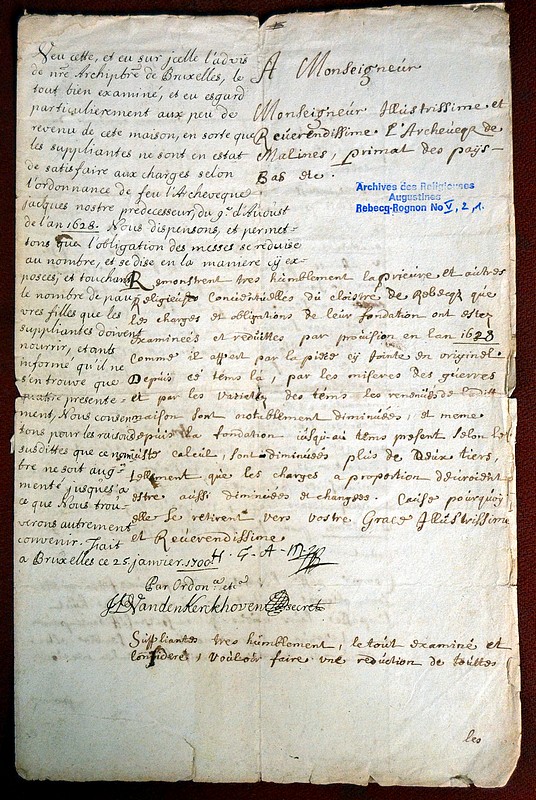 Veu cette, et eu sur jcelle l'advis
de nre Archiptre de Bruxelles, le
tout bien examiné, et eu esgard
particulierement aux peu de
revenu de cete maison, en sorte que
les suppliantes ne sont en estat
de satisfaire aux charges selon
l'ordonnance de feu l'Archeveque
Jacques nostre predecesseur, du 9e d'Aoust
de l'an 1628. Nous dispensons, et permet-
tons que l'obligation des messes se reduise
au nombre, et se dise en la maniere cy ex-
posées; et touchant
le nombre de pau-
vres filles que les
suppliantes doivent
nourrir, estants
informé qu'il ne
s'en trouve que
quatre presente-
ment, Nous consen-
tons pour les raisons
susdittes que ce nom-
bre ne soit aug-
menté jusques a
ce que Nous trou-
verons autrement
convenir. Fait
a Bruxelles ce 25 janvier 1700
H. G. A. M.
Par Ordonce etc
VandenKerckhoven secret
A Monseigneur
Monseigneur Illustrissime et
Reverendissime L'Archeveqz de
Malines, primat des pays-
Bas etc.
Archives des Religieuses
Augustines
Rebecq-Rognon No V, 2, 1.
Remonstrent tres humblement la prieure et autres
Religieuses Conventuelles du cloistre de Rebecqz que
les charges et obligations de leur fondation ont estez
examineés et reduittes par provision en lan 1628
comme il appert par la piece cy jointe en originel
Depuis ce téms la, par les miseres des guerres
et par les varietez des téms les renvenues de laditt
maison sont notablement diminuées, et meme
depuis la fondation iusqu'au tems present selon le
juste calcul, sont diminuées plus de Deux tiers,
tellement que les charges a proportion devroient
estre aussi diminuées et changées. Cause pourquoy
elle se retirent vers vostre Grace Illustrissime
et Reverendissime
Suppliantes tres humblement, le tout examiné et
consideré, vouloir faire une reduction de touttes
les